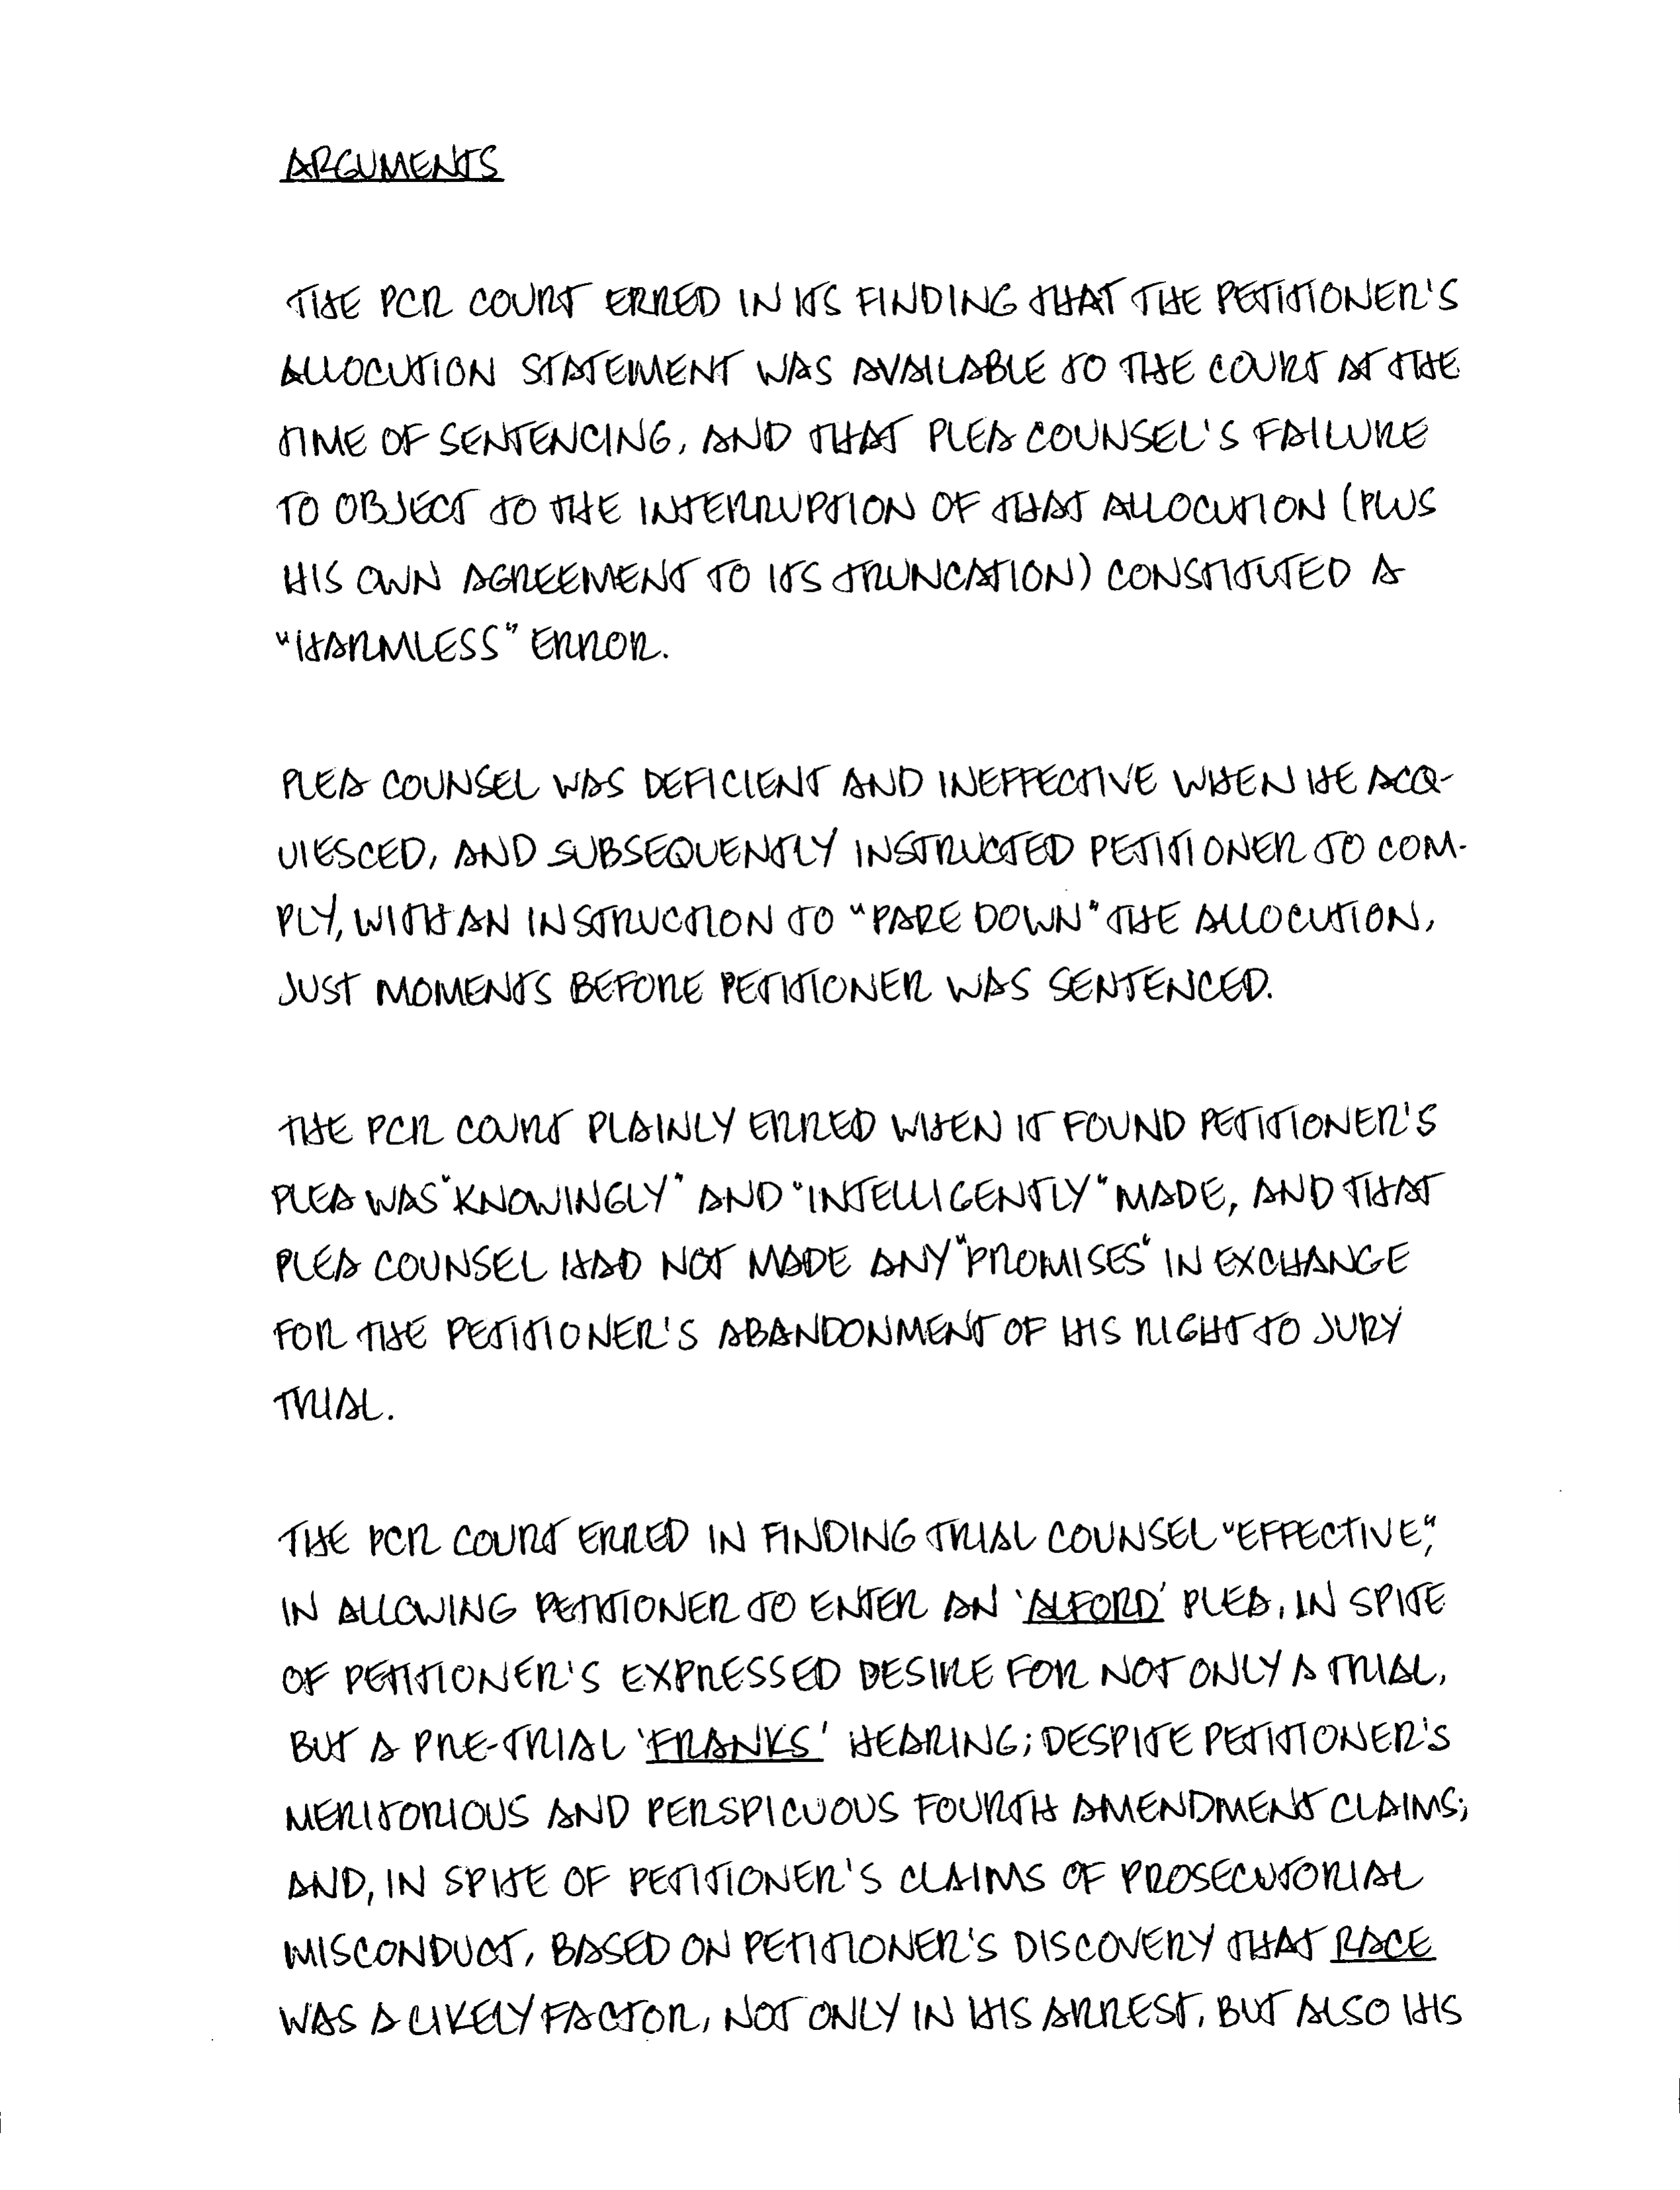 ARGUMENTS
THE PCR COURT ERRED IN ITS FINDING THAT THE PETITIONER'S
ALLOCUTION STATEMENT WAS AVAILABLE TO THE COURT AT THE
TIME OF SENTENCING, AND THAT PLEA COUNSEL'S FAILURE
TO OBJECT TO THE INTERRUPTION OF THAT ALLOCUTION (PLUS
HIS OWN AGREEMENT TO ITS TRUNCATION) CONSTITUTED A
"HARMLESS" ERROR.
PLEA COUNSEL WAS DEFICIENT AND INEFFECTIVE WHEN HE ACQ-
UIESCED, AND SUBSEQUENTLY INSTRUCTED PETITIONER TO COM-
PLY, WITH AN INSTRUCTION TO "PARE DOWN" THE ALLOCUTION,
JUST MOMENTS BEFORE PETITIONER WAS SENTENCED.
THE PCR COURT PLAINLY ERRED WHEN IT FOUND PETITIONER'S
PLEA WAS "KNOWINGLY" AND "INTELLIGENTLY" MADE, AND THAT
PLEA COUNSEL HAD NOT MADE ANY "PROMISES" IN EXCHANGE
FOR THE PETITIONER'S ABANDONMENT OF HIS RIGHT TO JURY
TRIAL.
THE PCR COURT ERRED IN FINDING TRIAL COUNSEL "EFFECTIVE,"
IN ALLOWING PETITIONER TO ENTER AN 'ALFORD' PLEA, IN SPITE
OF PETITIONER'S EXPRESSED DESIRE FOR NOT ONLY A TRIAL,
BUT A PRE-TRIAL 'FRANKS' HEARING; DESPITE PETITIONER'S
MERITORIOUS AND PERSPICUOUS FOURTH AMENDMENT CLAIMS;
AND, IN SPITE OF PETITIONER'S CLAIMS OF PROSECUTORIAL
MISCONDUCT, BASED ON PETITIONER'S DISCOVERY THAT RACE
WAS A LIKELY FACTOR, NOT ONLY IN HIS ARREST, BUT ALSO HIS